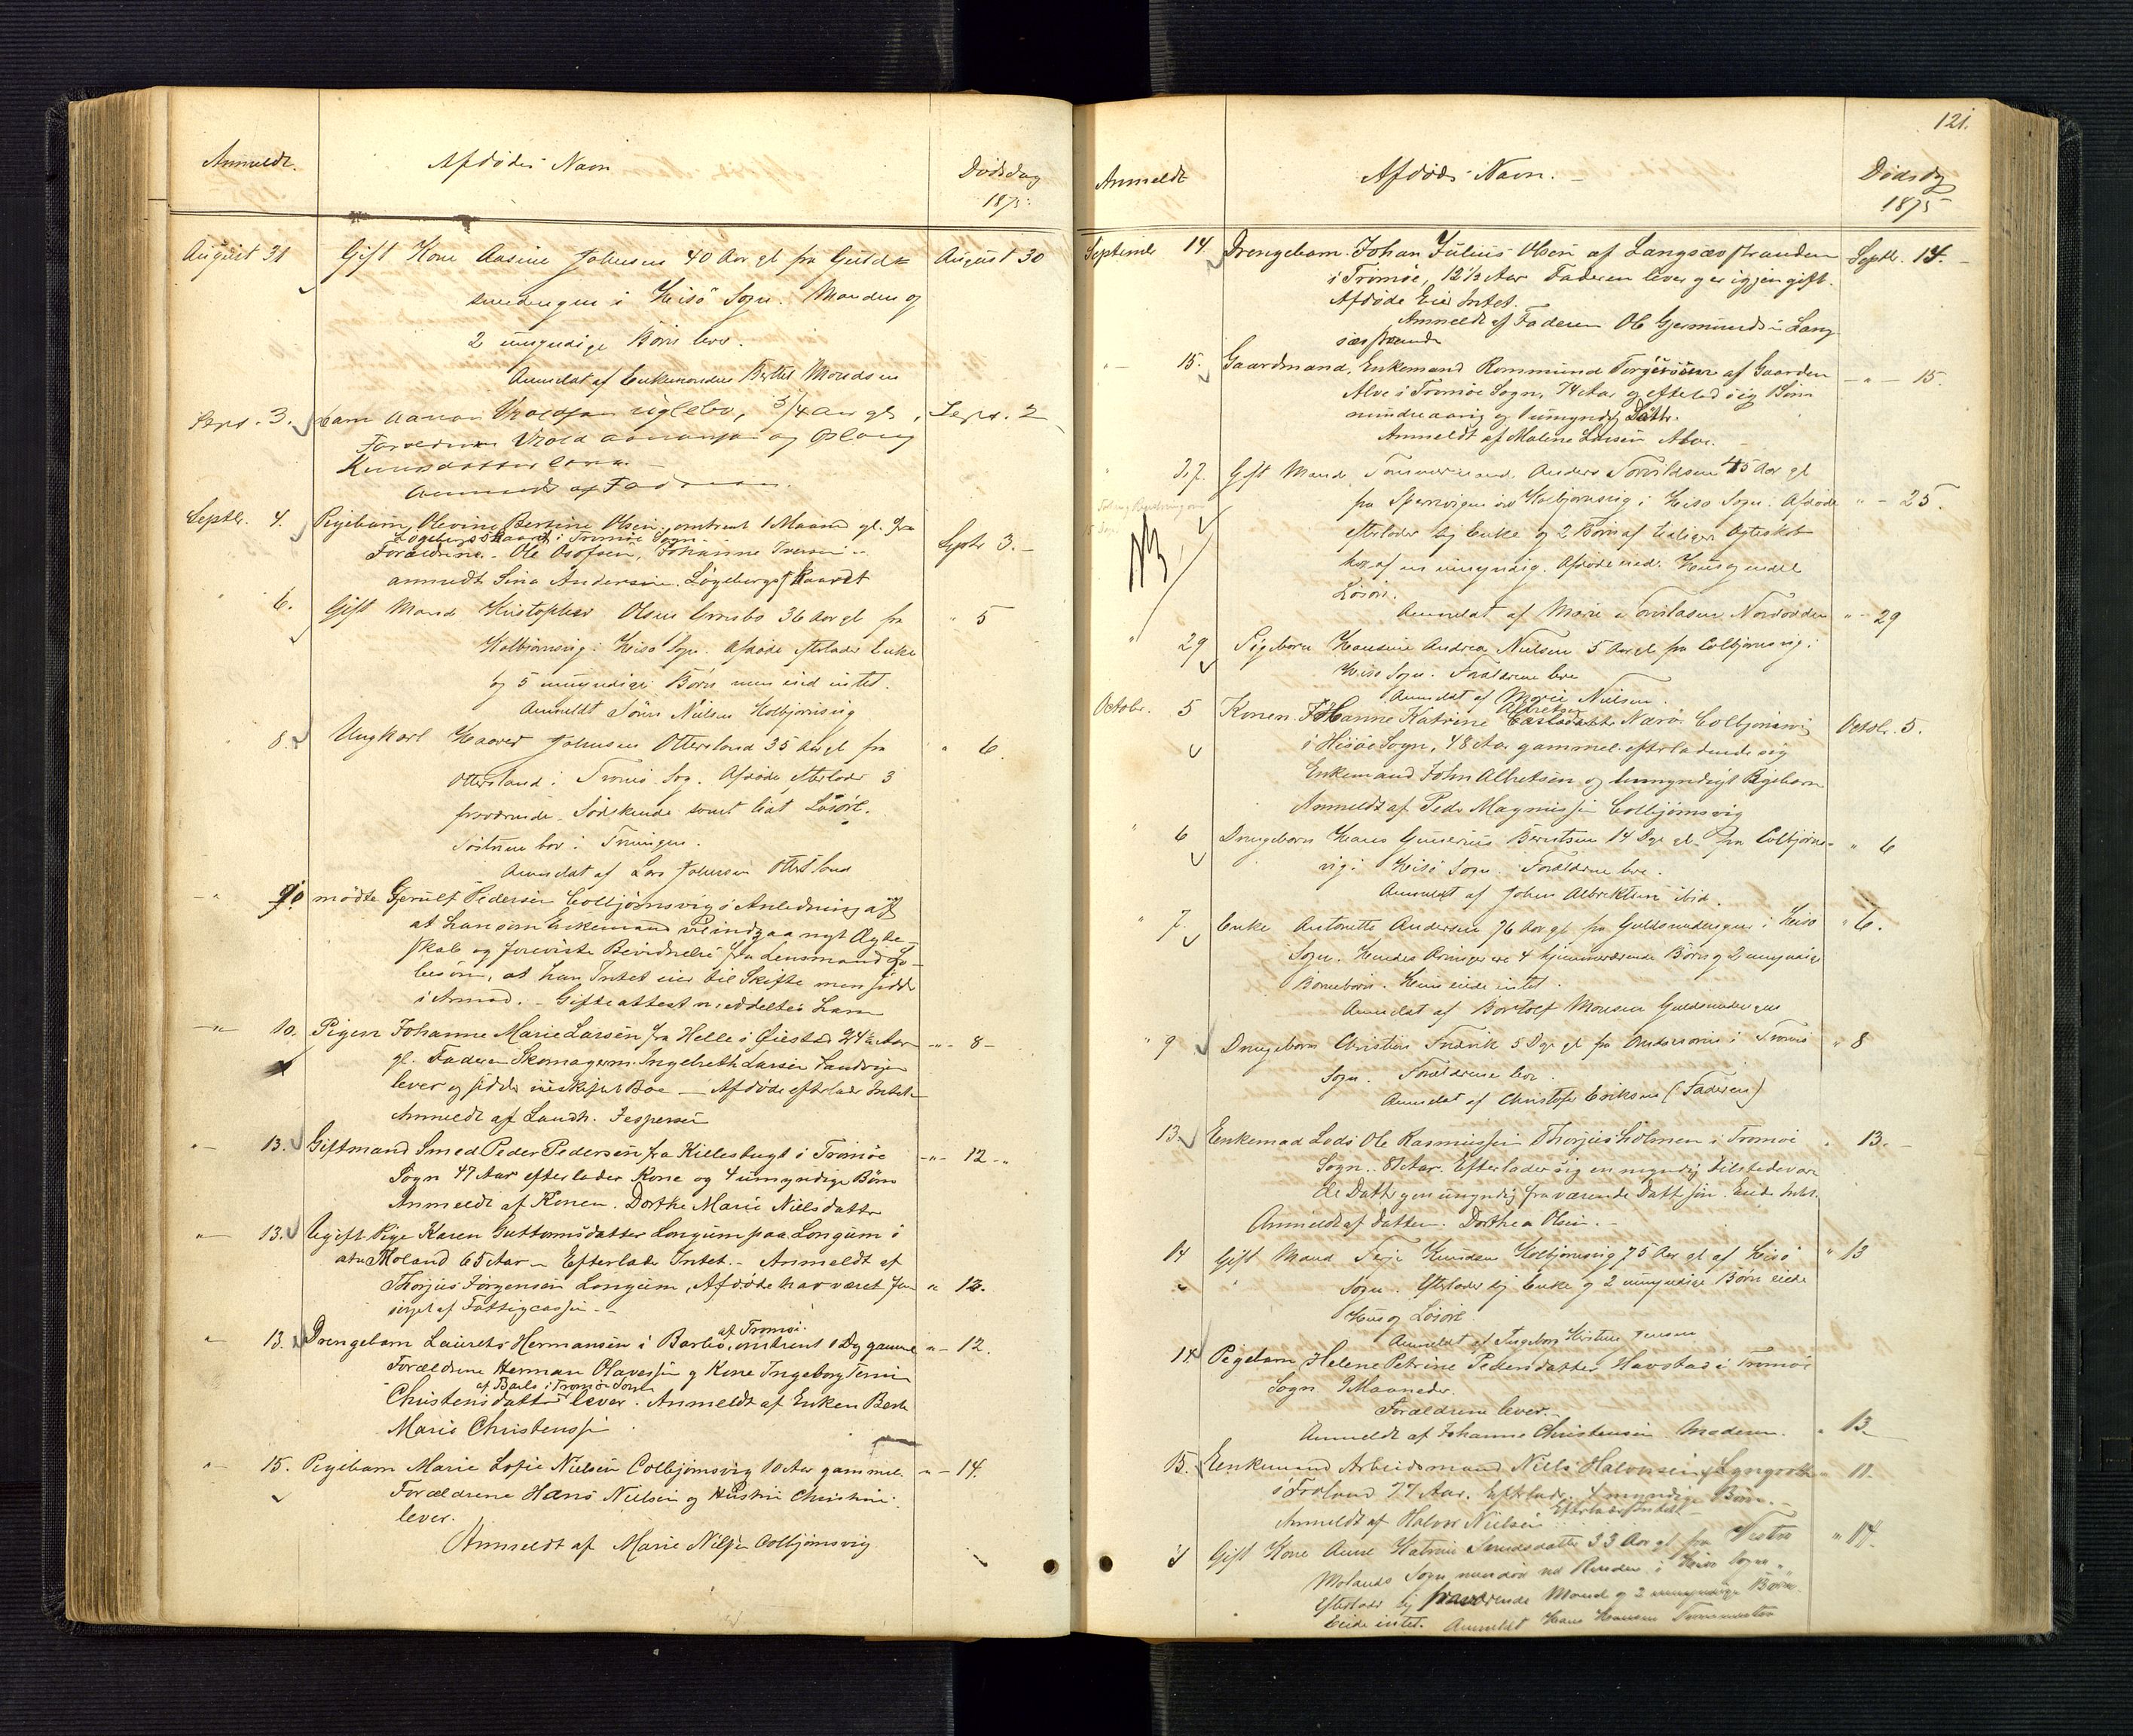 Anmeldt. Afdødes Navn Dødsdag
1875.
August 31 Gift Kone Aasine Johnsen 40 Aar gl fra Guld- August 30
smedengen i Hisö Sogn. Manden og
2 umyndige Börn lever.
Anmeldt af Enkemanden Berthel Monsen
Sept. 3. Barn Aanon 3/4 aar gl. Sept. 2
Forældrene og Aslaug
Knudsdatter lever.
Anmeldt af Faderen.
Septbr. 4. Pigebarn, Olevine Bertine Olsen, omtrent 1 Maaned gl. fra
i Tromøe Sogn.
Forældrene - Ole Johanne Iversen - Septr 3.-
anmeldt Sina Andersen.
" 6. Gift Mand Kristopher Olsen 36 Aar gl fra " 5
Kolbjørnsvig i Hisö Sogn. Afdöde efterlader Enke
og 5 umyndige Börn men eied intet.
Anmeldt Sören Nielsen Kolbjörnsvig
" 8. Ungkarl Haaver Johnsen Ottersland 35 Aar gl fra " 6.
Ottersland i Tromö Sogn. Afdöde efterlader 3
fraværende Södskende samt lidt Lösöre.
Söstrene bor i
Anmeldt af Lars Johnsen Ottersland
-"- 9. mødte Gerult Pedersen Colbjørnsvig i Anledning af
at han som Enkemand vil indgaa nyt Ægte-
skab og foreviste Bevidnelse fra Lensmand
at han Intet eier til Skifte men sidder
i Armod. - Gifteattest meddeltes ham
-"- 10. Pigen Johanne Marie Larsen fra Helle i Øiestad 24½ Aar -"- 8-
gl. Faderen Skomagerm. Ingebreth Larsen Sandvigen
lever og sidder i uskiftet Boe - Afdøde efterlader Intet.
Anmeldt af Landh. Jespersen
"- 13. Giftmand Smed Peder Pedersen fra Killesbugt i Tromöe -"- 12-"
Sogn 47 Aar efterlader Kone og 4 umyndige Børn
Anmeldt af Konen. Dorthe Marie Nielsdatter
"- 13. Ugift Pige Karen Guttormsdatter Longum paa Longum i
Moland 65 Aar - Efterlader Intet.- Anmeldt af
Thorjus Jørgensen Longum, Afdøde har været for- " 12.
sørget af Fattigcassen.-
" 13. Drengebarn Laurets Hermansen i Barbo af Tromøe omtrent 1 Dg gammel "- 12.
Forældrene Herman Olavessen og Kone Ingeborg
Christensdatter af Barbo i Tromøe Sogn lever. Anmeldt af Enken Berthe
Marie Christenssen
"- 15. Pigebarn Marie Sofie Nielsen Colbjørnsvig 10 Aar gammel. "- 14.
Forældrene Hans Nielsen og Christine
lever.
Anmeldt af Marie Nilsen Colbjørnsvig
121.
Anmeldt Afdødes Navn. - Dødsdg
1875
Septembr 14. Drengebarn. Johan Julius Olsen af Langsæstranden Septbr. 14.-
i Tromøe, 12½ Aar Faderen lever og er igjen gift.
Afdøde Eier Intet.
Anmeldt af Faderen Ole Gjermundsen Lang-
sæstranden
"- 15. Gaardmand, Enkemand Rommund Tergiersen af Gaarden -"- 15.
Alve i Tromøe Sogn, 74 Aar og efterlod sig Børn
mindreaarig og 1 umyndg Datter.
Anmeldt af Malene Larsen Alve.
27. Gift Mand, Tömmermand, Anders Torvildsen 45 Aar gl
fra Spervigen ved Kolbjørnsvig i Hisö Sogn. Afdøde "- 25.
efterlader sig Enke og 2 Börn af tidligere Ægteskab
hvoraf en umyndig. Afdöde eiede Hus og endel
Lösöre.
Anmeldt af Marie Torvildsen "- 29
NB.
" 29 Pigebarn Hansine Andrea Nielsen 5 Aar gl fra Colbjørnsvig i
Hisö Sogn. Forældrene lever
Anmeldt af Marie Nielsen.
Octobr. 5 Konen Johanne Katrine Nærö Colbjørnsvig Octobr. 5.
i Hisøe Sogn, 48 Aar gammel efterladende sig
Enkemand John Albretsen og 1 umyndigt Pigebarn
Anmeldt af Peder Magnussen Colbjørnsvig
" 6 Drengebarn Hans Gunerius Berntsen 14 Dge gl fra Colbjørns- " 6
vig i Hisö Sogn. Forældrene lever.
Anmeldt af Johan Albrektsen ibid.
" 7. Enke Antonette Andersen 76 Aar gl fra Guldsmedengen i Hisö " 6.
Sogn. Hendes Arvinger ere 4 hjemmeværende Börn og 2 umyndige
Börnebörn. Hun eiede intet.
Anmeldt af Monsen Guldsmedengen
" 9 Drengebarn Christian Fredrik 5 Dge gl fra i Tromö " 8
Sogn. Forældrene lever.
Anmeldt af Christofer Eriksen (Faderen)
13. Enkemand Lods Ole Rasmussen Thorjusholmen i Tromøe " 13.-
Sogn.. 81 Aar. Efterlader sig en myndig tilstedeværen-
de Datter og en umyndig fraværende Dattersøn. Eiede Intet.
Anmeldt af Datteren. Dorthea Olsen.-
14 Gift Mand Terje Knudsen Kolbjørnsvig 75 Aar gl af Hisö " 13
Sogn. Efterlader sig Enke og 2 umyndige Börn eiede
Hus og Lösöre.
Anmeldt af Ingeborg Kirstine Jensen
14. Pigebarn Helene Petrine Pedersdatter Havstad i Tromøe
Sogn 9 Maaneder.
Forældrene lever.-
Anmeldt af Johanne Christensen Moderen. " 13.
15. Enkemand Arbeidsmand Niels Halvorsen " 11.
i Froland 77 Aar. Efterlader 4 myndige Børn.-
Anmeldt af Halvor Nielsen Efterlader Intet-
" Gift Kone Anne Katrine 33 Aar gl fra Vestre " 14.
Molands Sogn men död ved Renden i Hisö Sogn.
Efterlader sig fraværende Mand og 2 umyndige Börn.
Eiede intet. Anmeldt Hans Hansen